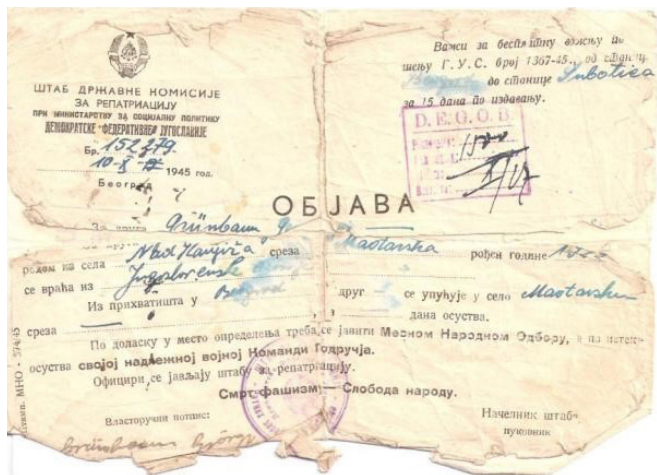 ШТАБ ДРЖАВНЕ КОМИСИЈЕ
ЗА РЕПАТРИАЦИЈУ
ПРИ МИНИСТАРСТВУ ЗА СОЦИЈАЛНУ ПОЛИТИКУ
ДЕМОКРАТСКЕ ФЕДЕРАТИВНЕ ЈУГОСЛАВИЈЕ
Бр. 152279.
10-X 1945 год.
Београд
Важи за бесплатну вожњу по
шењу Г.У.С. број 1367-45., од станице
Beograd до станице Subotica
за 15 дана по издавању.
D.E.G.O.B.
ОБЈАВА
За друга Grünbaum
родом из села среза рођен године
се враћа из
Из прихватишта у Beograd друг се упућује у село
среза дана осуства.
По доласку у место определења треба се јавити Месном Народном Одбору, а по
осуства својој надлежној војној Команди Подручја.
Официри се јављају штабу за репатрацију.
Смрт фашизму — Слобода народу.
Властoручни потпис:
Начелник штаба
пуковник
Grünbaum György
Штамп. МНО - 574/45